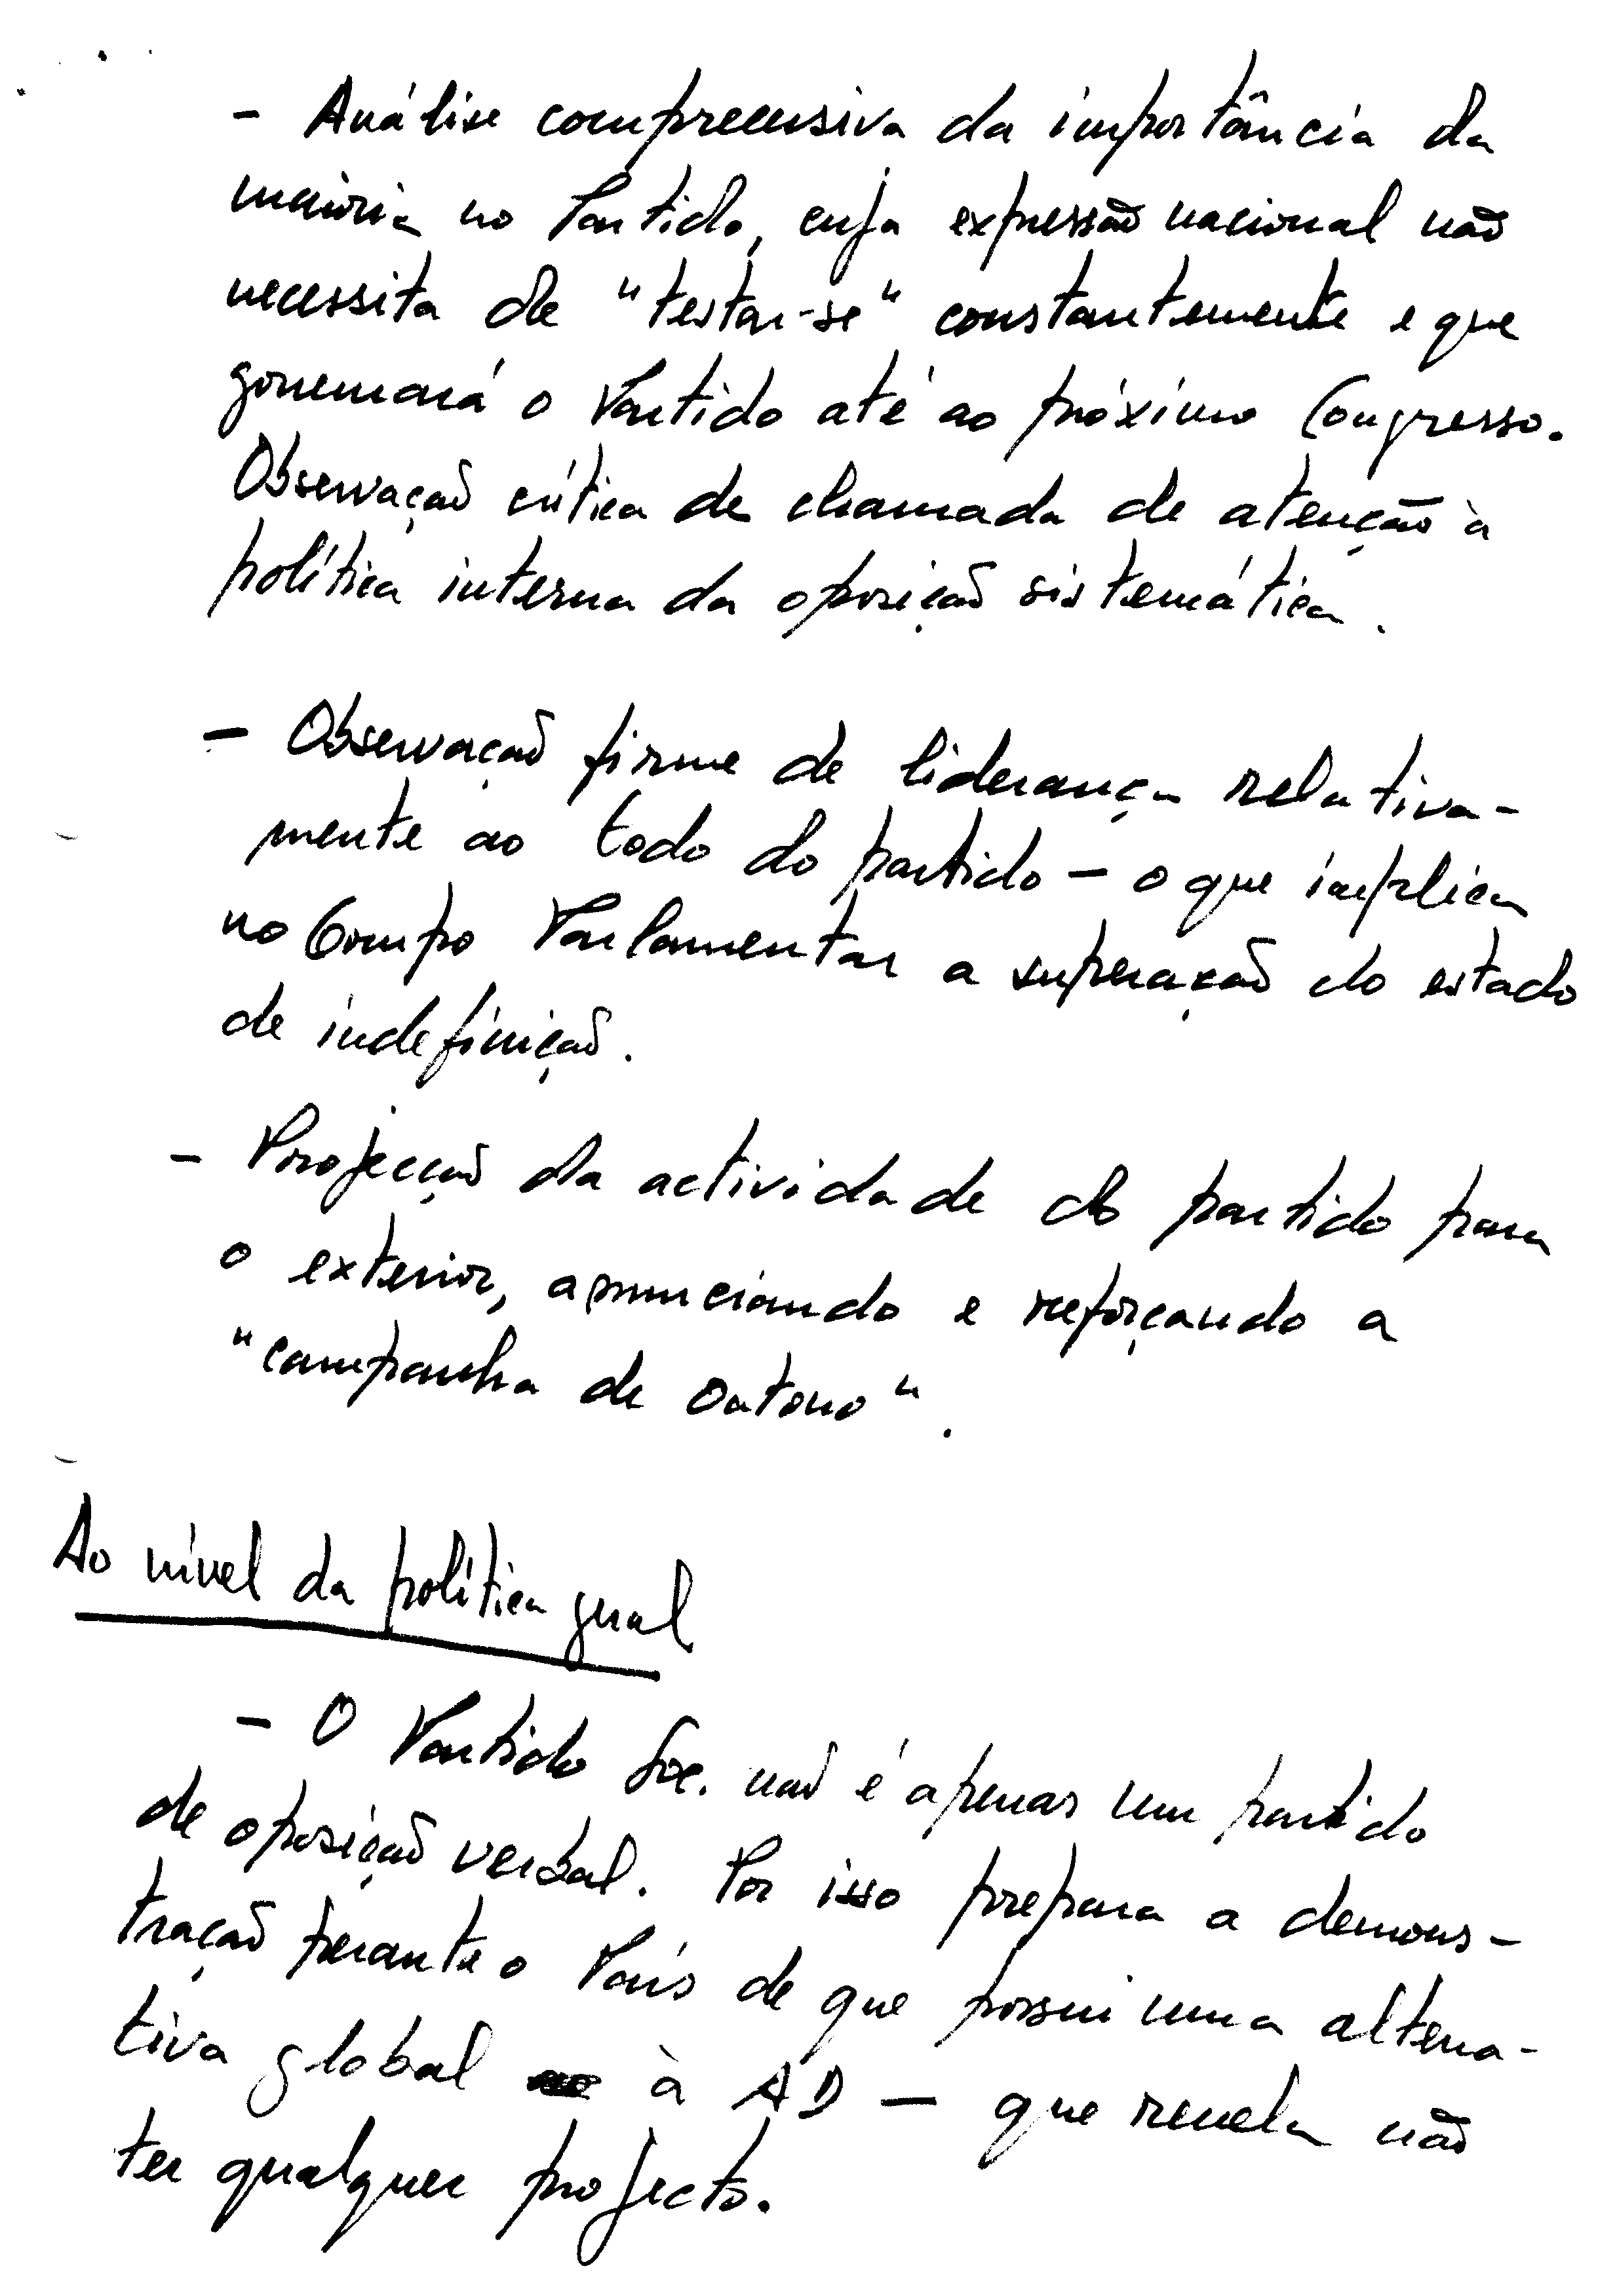 - Análise compreensiva da importância da
maioria no Partido, cuja expressão nacional não
necessita de "testar-se" constantemente e que
governará o Partido até ao próximo Congresso.
Observação crítica de chamada de atenção à
política interna da oposição sistemática.
- Observação firme de liderança relativa-
mente ao todo do partido - o que implica
no Grupo Parlamentar a superação do estado
de indefinição.
- Projecção da actividade do partido para
o exterior, anunciando e reforçando a
"campanha de outono".
Ao nível da política geral
- O Partido Soc. não é apenas um partido
de oposição verbal. Por isso prepara a demons-
tração perante o País de que possui uma alterna-
tiva global à AD - que revela não
ter qualquer projecto.